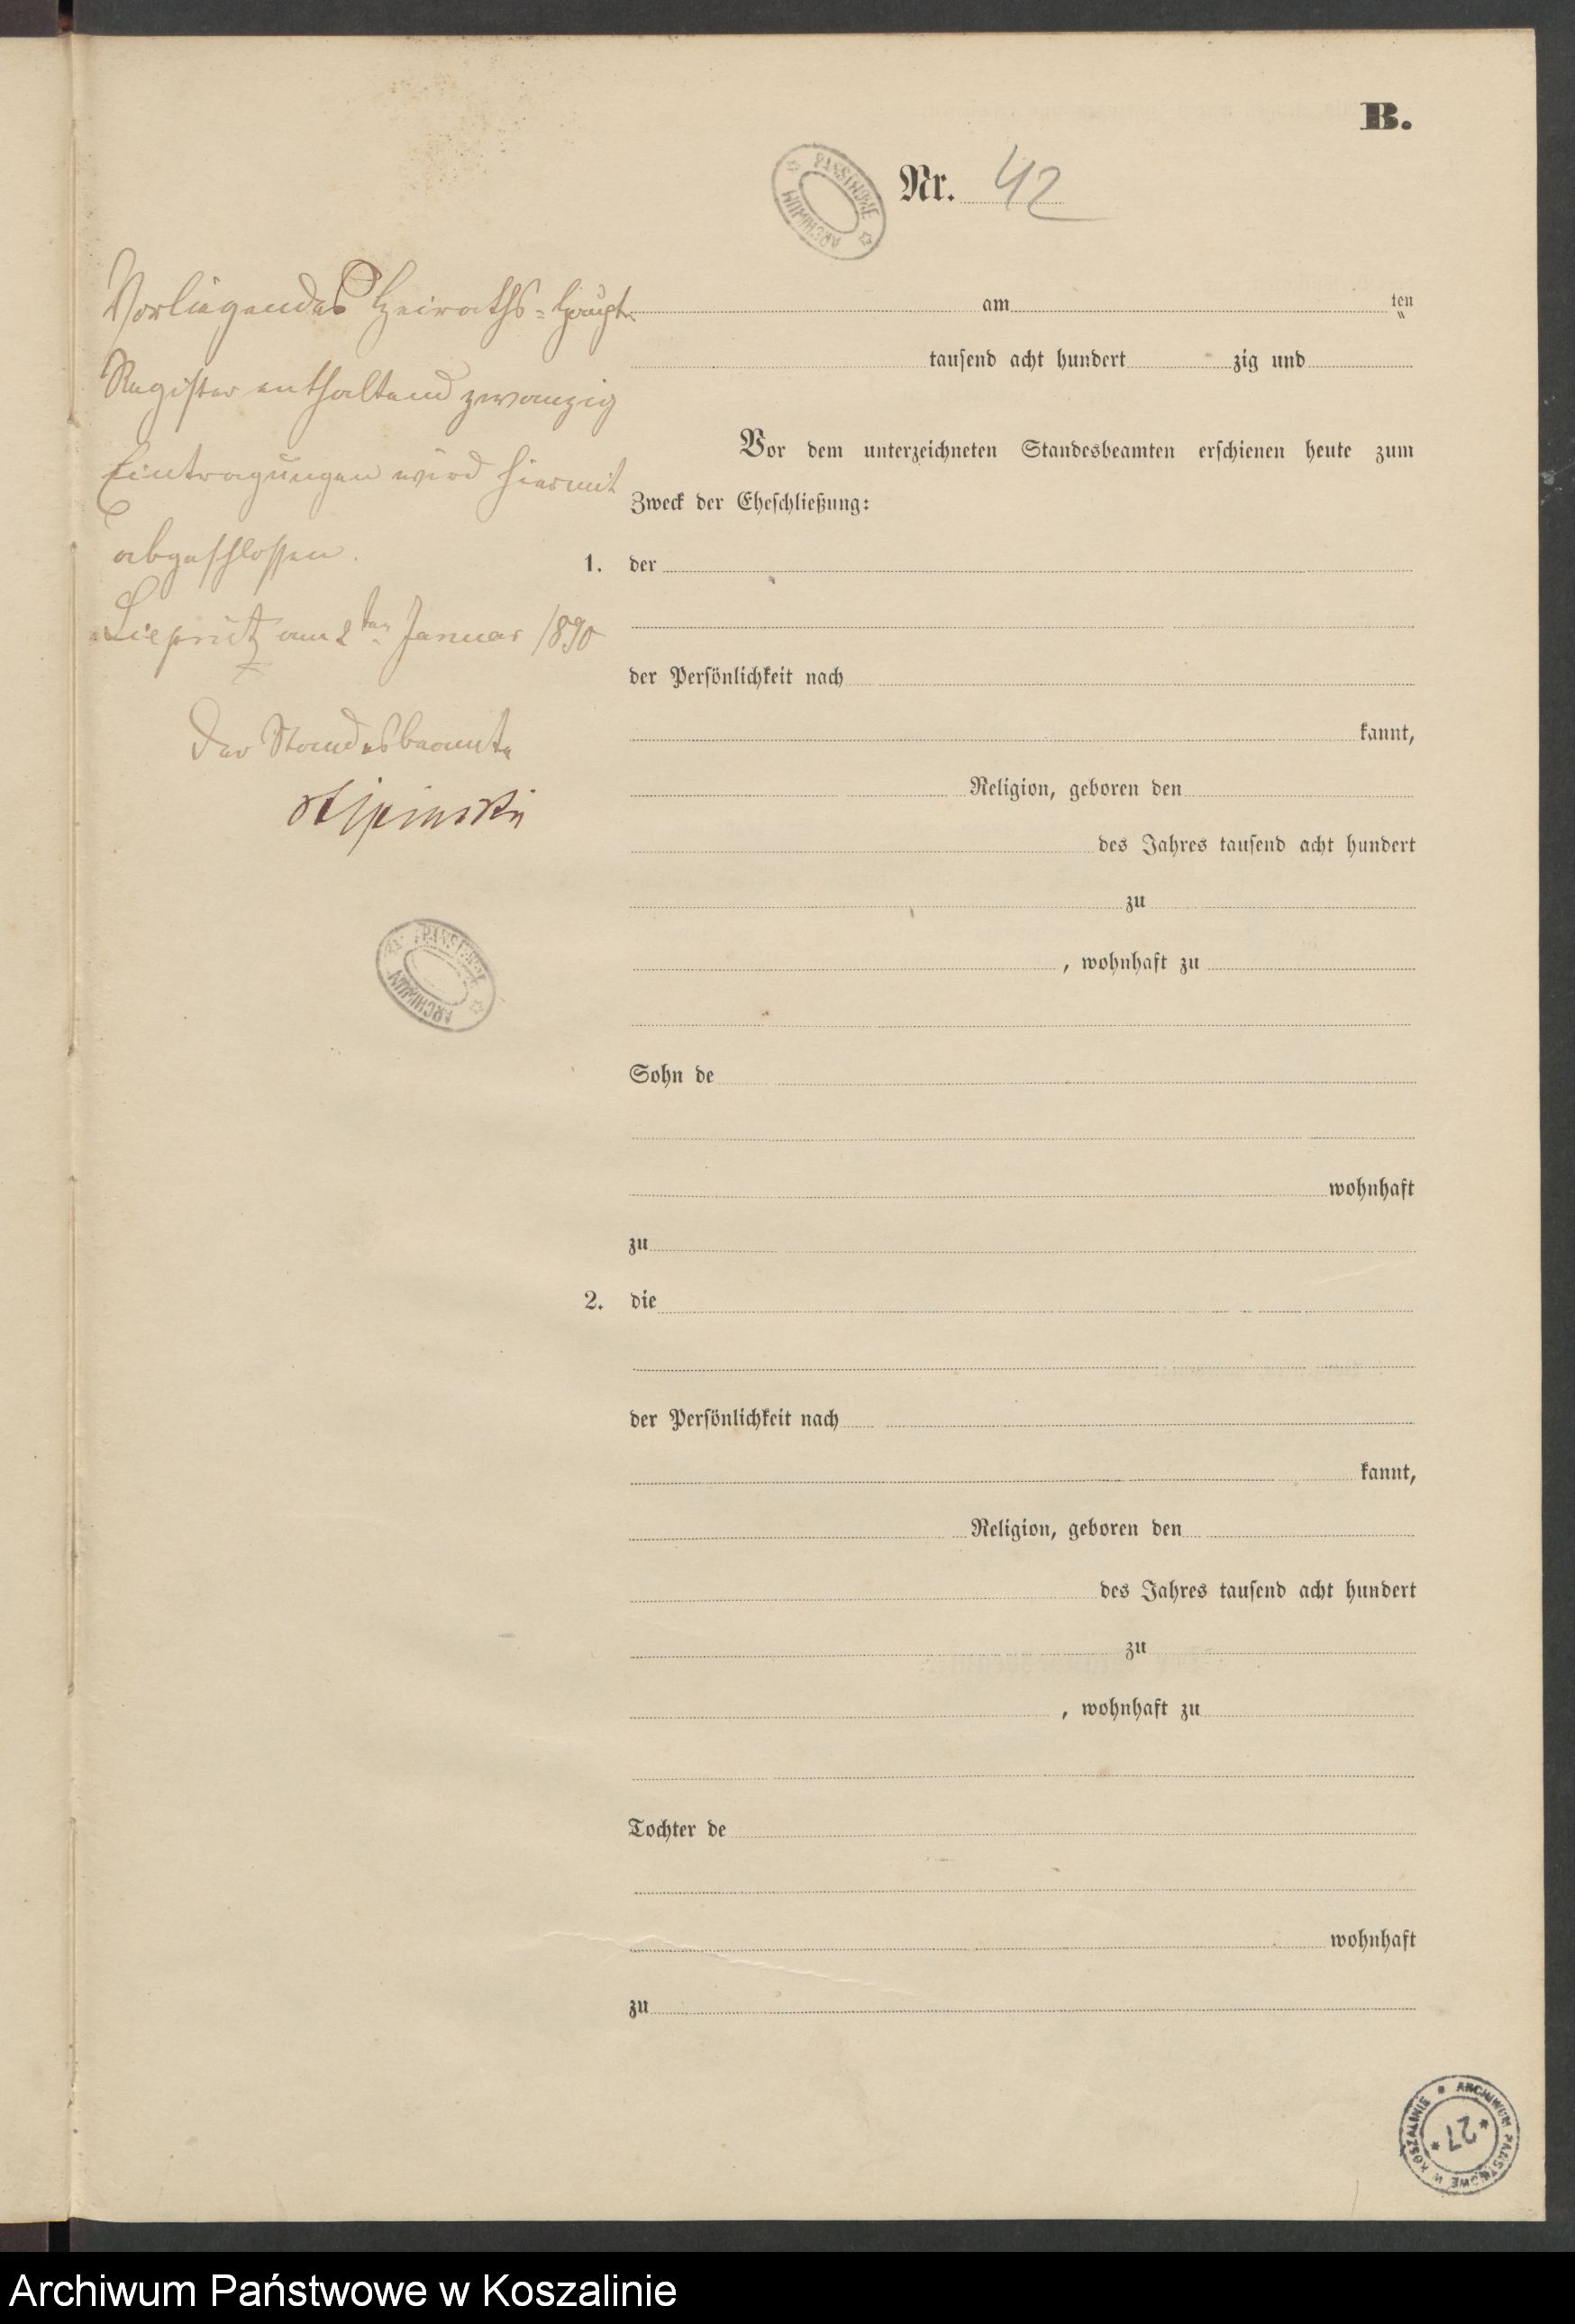 B.
PAŃSTWOWE ARCHIWUM
Nr. 42
Vorliegendes Heiraths-Haupt-
Register enthaltend zwanzig
Eintragungen wird hiermit
abgeschlossen.
am 2ten Januar 1890
Der Standesbeamte
PAŃSTWOWE ARCHIWUM
am ten
tausend acht hundert zig und
Vor dem unterzeichneten Standesbeamten erschienen heute zum
Zweck der Eheschließung:
1. der
der Persönlichkeit nach
kannt,
Religion, geboren den
des Jahres tausend acht hundert
zu
, wohnhaft zu
Sohn de
wohnhaft
zu
2. die
der Persönlichkeit nach
kannt,
Religion, geboren den
des Jahres tausend acht hundert
zu
, wohnhaft zu
Tochter de
wohnhaft
zu
ARCHIWUM PAŃSTWOWE W KOSZALINIE
* 27 *
Archiwum Państwowe w Koszalinie